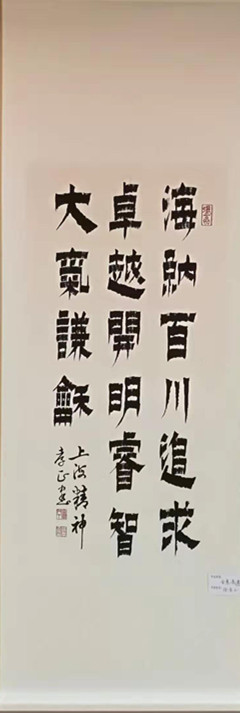 海納百川追求
卓越開明睿智
大氣謙龢
上海精神
孝正書